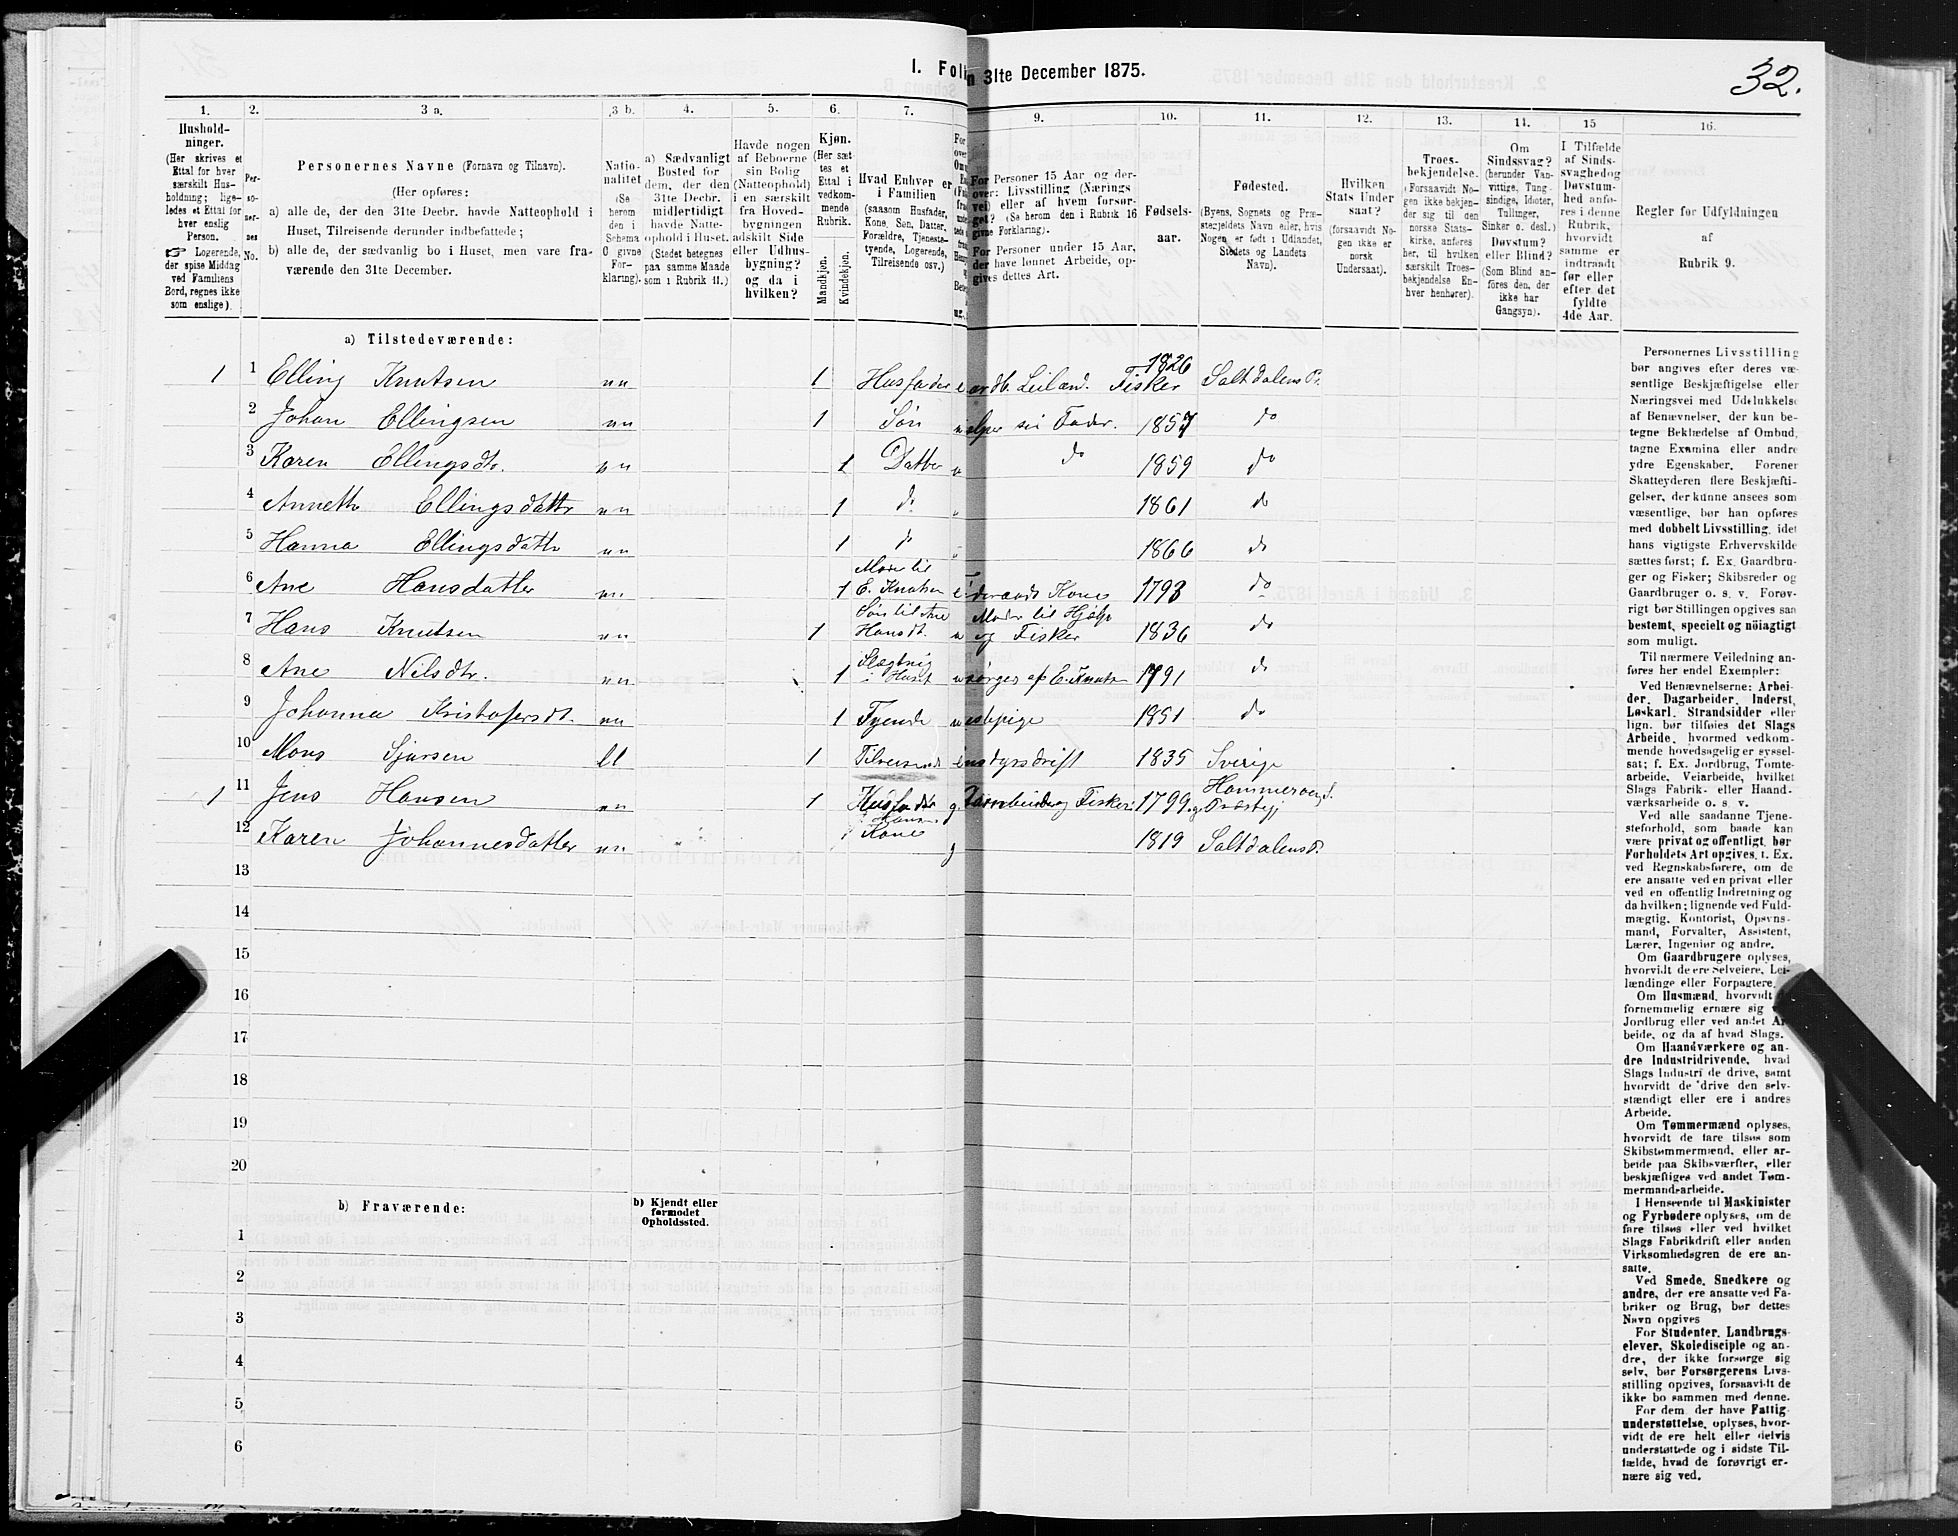 32.
I. Fol n 31te December 1875.
1. 2. 3 a. 3 b. 4. 5. 6. 7. 9. 10. 11. 12. 13. 14. 15 16.
Hushold-
ninger.
(Her skrives et
Ettal for hver
særskilt Hus-
holdning; lige-
ledes et Ettal for
hver enslig
Person.
☞ Logerende,
der spise Middag
ved Familiens
Bord, regnes ikke
som enslige).
Per-
so-
ner-
nes
No.
Personernes Navne (Fornavn og Tilnavn).
(Her opføres:
a) alle de, der den 31te Decbr. havde Natteophold i
Huset, Tilreisende derunder indbefattede;
b) alle de, der sædvanlig bo i Huset, men vare fra-
værende den 31te December.
Natio-
nalitet
(Se
herom
den i
Schema
0 givne
For-
klaring).
a) Sædvanligt
Bosted for
dem, der den
31te Decbr.
midlertidigt
havde Natte-
ophold i Huset.
(Stedet betegnes
paa samme Maade
som i Rubrik 11.)
Havde nogen
af Beboerne
sin Bolig
(Natteophold)
i en særskilt
fra Hoved-
bygningen
adskilt Side
eller Udhus-
bygning?
og da i
hvilken?
Kjøn.
(Her sæt-
tes et
Ettal i
vedkom-
mende
Rubrik.
Mandkjøn.
Kvindekjøn.
Hvad Enhver er
i Familien
(saasom Husfader,
Kone, Søn, Datter,
Forældre, Tjeneste-
tyende, Logerende,
Tilreisende osv.)
For Personer 15 Aar og der-
over: Livsstilling (Nærings
vei) eller af hvem forsør-
get? (Se herom den i Rubrik 16
givne Forklaring).
For Personer under 15 Aar,
der have lønnet Arbeide, op-
gives dettes Art.
Fødsels-
aar.
Fødested.
(Byens, Sognets og Præ-
stegjeldets Navn eller, hvis
Nogen er født i Udlandet,
Stedets og Landets
Navn).
Hvilken
Stats Under
saat?
(forsaavidt No-
gen ikke er
norsk
Undersaat).
Troes-
bekjendelse.
(Forsaavidt No-
gen ikke bekjen-
der sig til den
norske Stats-
kirke, anføres
her, til hvilken
særskilt Troes-
bekjendelse En-
hver henhører).
Om
Sindssvag?
(herunder Van-
vittige, Tung-
sindige, Idioter,
Tullinger,
Sinker o. desl.)
Døvstum?
eller Blind?
(Som Blind an-
føres den, der
ikke har
Gangsyn).
I Tilfælde
af Sinds-
svaghed og
Døvstum-
hed anfø-
res i denne
Rubrik,
hvorvidt
samme er
indtraadt
før eller
efter det
fyldte
4de Aar.
Regler for Udfyldningen
af
Rubrik 9.
a) Tilstedeværende:
1 1 Elling Knutsen nn 1 Husfader Leilænd. Fisker 1826 Saltdalens Pr.
2 Johan Ellingsen nn 1 Søn sin Fader. 1857 do
3 Karen Ellingsdtr. nn 1 Datter do 1859 do
4 Anneth Ellingsdattr nn 1 do 1861 do
5 Hanna Ellingsdattr nn 1 do 1866 do
6 Ane Hansdatter nn 1 Moder til E. Knutsen Kone 1793 do
7 Hans Knutsen nn 1 Søn til Ane Hansdt. Moder til Hjælp og Fisker 1836 do
8 Ane Nilsdtr. nn 1 Slægtning i Huset af E. Knuts 1791 do
9 Johanna Kristofersdt. nn 1 Tyende 1851 do
10 Mons Sjursen ll 1 Tilreisende 1835 Sverige
1 11 Jens Hansen nn 1 Husfader Fisker 1799 Hammerøens Præstegj
12 Karen Johannesdatter nn 1 Kone 1819 Saltdalens Pr.
13
14
15
16
17
18
19
20
b) Fraværende:
b) Kjendt eller
formodet
Opholdssted.
1
2
3
4
5
6
Personernes Livsstilling
bør angives efter deres væ-
sentlige Beskjæftigelse eller
Næringsvei med Udelukkelse
af Benævnelser, der kun be-
tegne Beklædelse af Ombud,
tagne Examina eller andre
ydre Egenskaber. Forener
Skatteyderen flere Beskjæfti-
gelser, der kunne ansees som
væsentlige, bør han opføres
med dobbelt Livsstilling, idet
hans vigtigste Erhvervskilde
sættes først; f. Ex. Gaardbru-
ger og Fisker; Skibsreder og
Gaardbruger o. s. v. Forøv-
rigt bør Stillingen opgives saa
bestemt, specielt og nöiagtigt
som muligt.
Til nærmere Veiledning an-
føres her endel Exempler:
Ved Benævnelserne: Arbei-
der, Dagarbeider, Inderst,
Løskarl, Strandsidder eller
lign. bør tilføies det Slags
Arbeide, hvormed vedkom-
mende hovedsagelig er syssel-
sat; f. Ex. Jordbrug, Tomte-
arbeide, Veiarbeide, hvilket
Slags Fabrik- eller Haand-
værksarbeide o. s. v.
Ved alle saadanne Tjene-
steforhold, som baade kan
være privat og offentligt, bør
Forholdets Art opgives, t. Ex.
ved Regnskabsførere, om de
ere ansatte ved en privat eller
ved en offentlig Indretning og
da hvilken; lignende ved Fuld-
mægtig, Kontorist, Opsyns-
mand, Forvalter, Assistent,
Lærer, Ingeniør og andre.
Om Gaardbrugere oplyses,
hvorvidt de ere Selveiere, Lei-
lændinge eller Forpagtere.
Om Husmænd, hvorvidt de
fornemmelig ernære sig ved
Jordbrug eller ved andet Ar-
beide, og da af hvad Slags.
Om Haandværkere og an-
dre Industridrivende, hvad
Slags Industri de drive, samt
hvorvidt de drive den selv-
stændigt eller ere i andres
Arbeide.
Om Tømmermænd oplyses,
hvorvidt de fare tilsøs som
Skibstømmermænd, eller ar-
beide paa Skibsværfter, eller
beskjæftiges ved andet Tøm-
mermandsarbeide.
I Henseende til Maskinister
og Fyrbødere oplyses, om de
fare tilsøs eller ved hvilket
Slags Fabrikdrift eller anden
Virksomhedsgren de ere an-
satte.
Ved Smede, Snedkere og
andre, der ere ansatte ved Fa-
briker og Brug, bør dettes
Navn opgives
For Studenter, Landbrugs-
elever, Skoledisciple og an-
dre, der ikke forsørge sig
selv, bør Forsørgerens Livs-
stilling opgives, forsaavidt de
ikke bo sammen med denne.
For dem, der have Fattig-
understøttelse, oplyses, hvor-
vidt de ere helt eller delvis
understøttede og i sidste Til-
fælde, hvad de forøvrigt er-
nære sig ved.